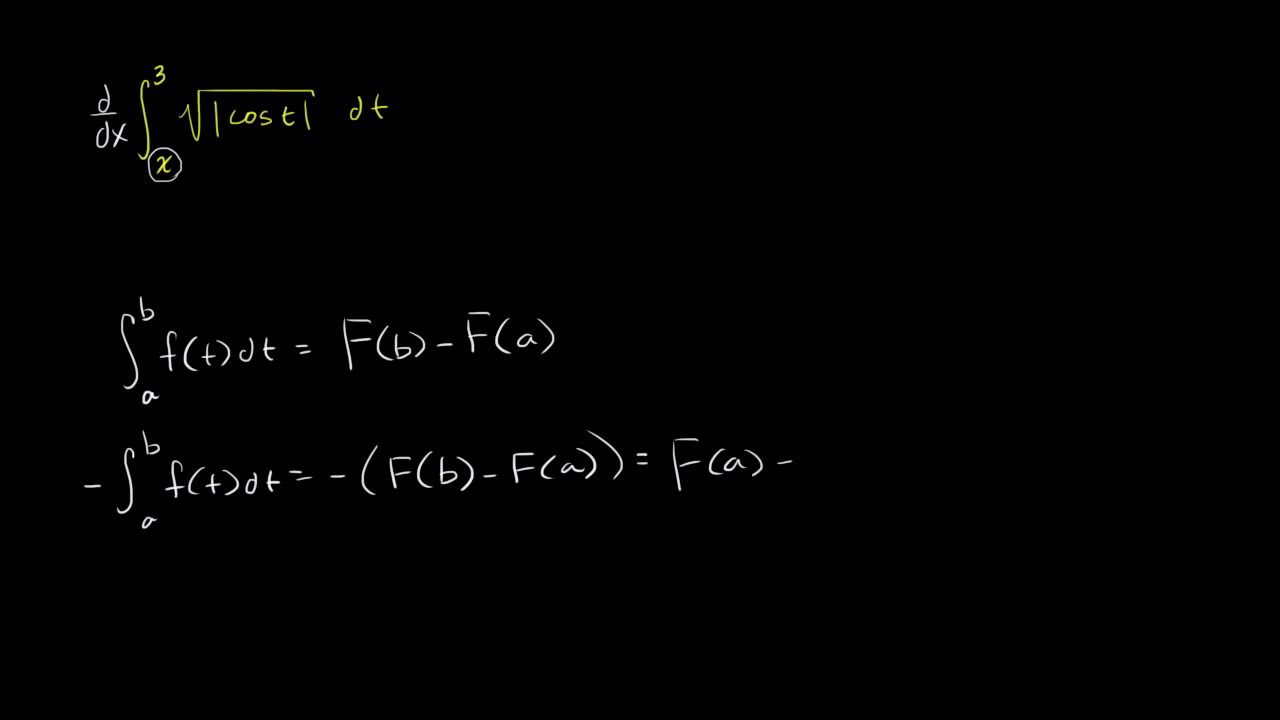 d/dx ∫_x^3 √|cos t| dt
∫_a^b f(t)dt = F(b) - F(a)
-∫_a^b f(t)dt = -(F(b) - F(a)) = F(a) -